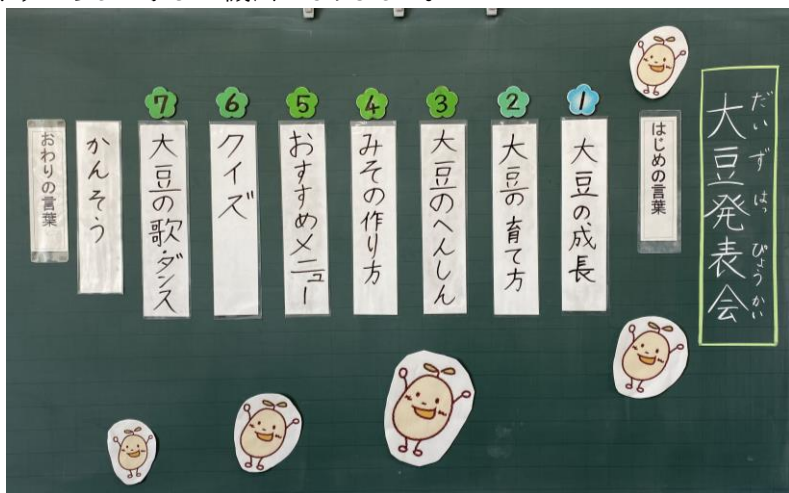 大豆発表会
だいずはっぴょうかい
はじめの言葉
1
大豆の成長
2
大豆の育て方
3
大豆のへんしん
4
みその作り方
5
おすすめメニュー
6
クイズ
7
大豆の歌・ダンス
かんそう
おわりの言葉